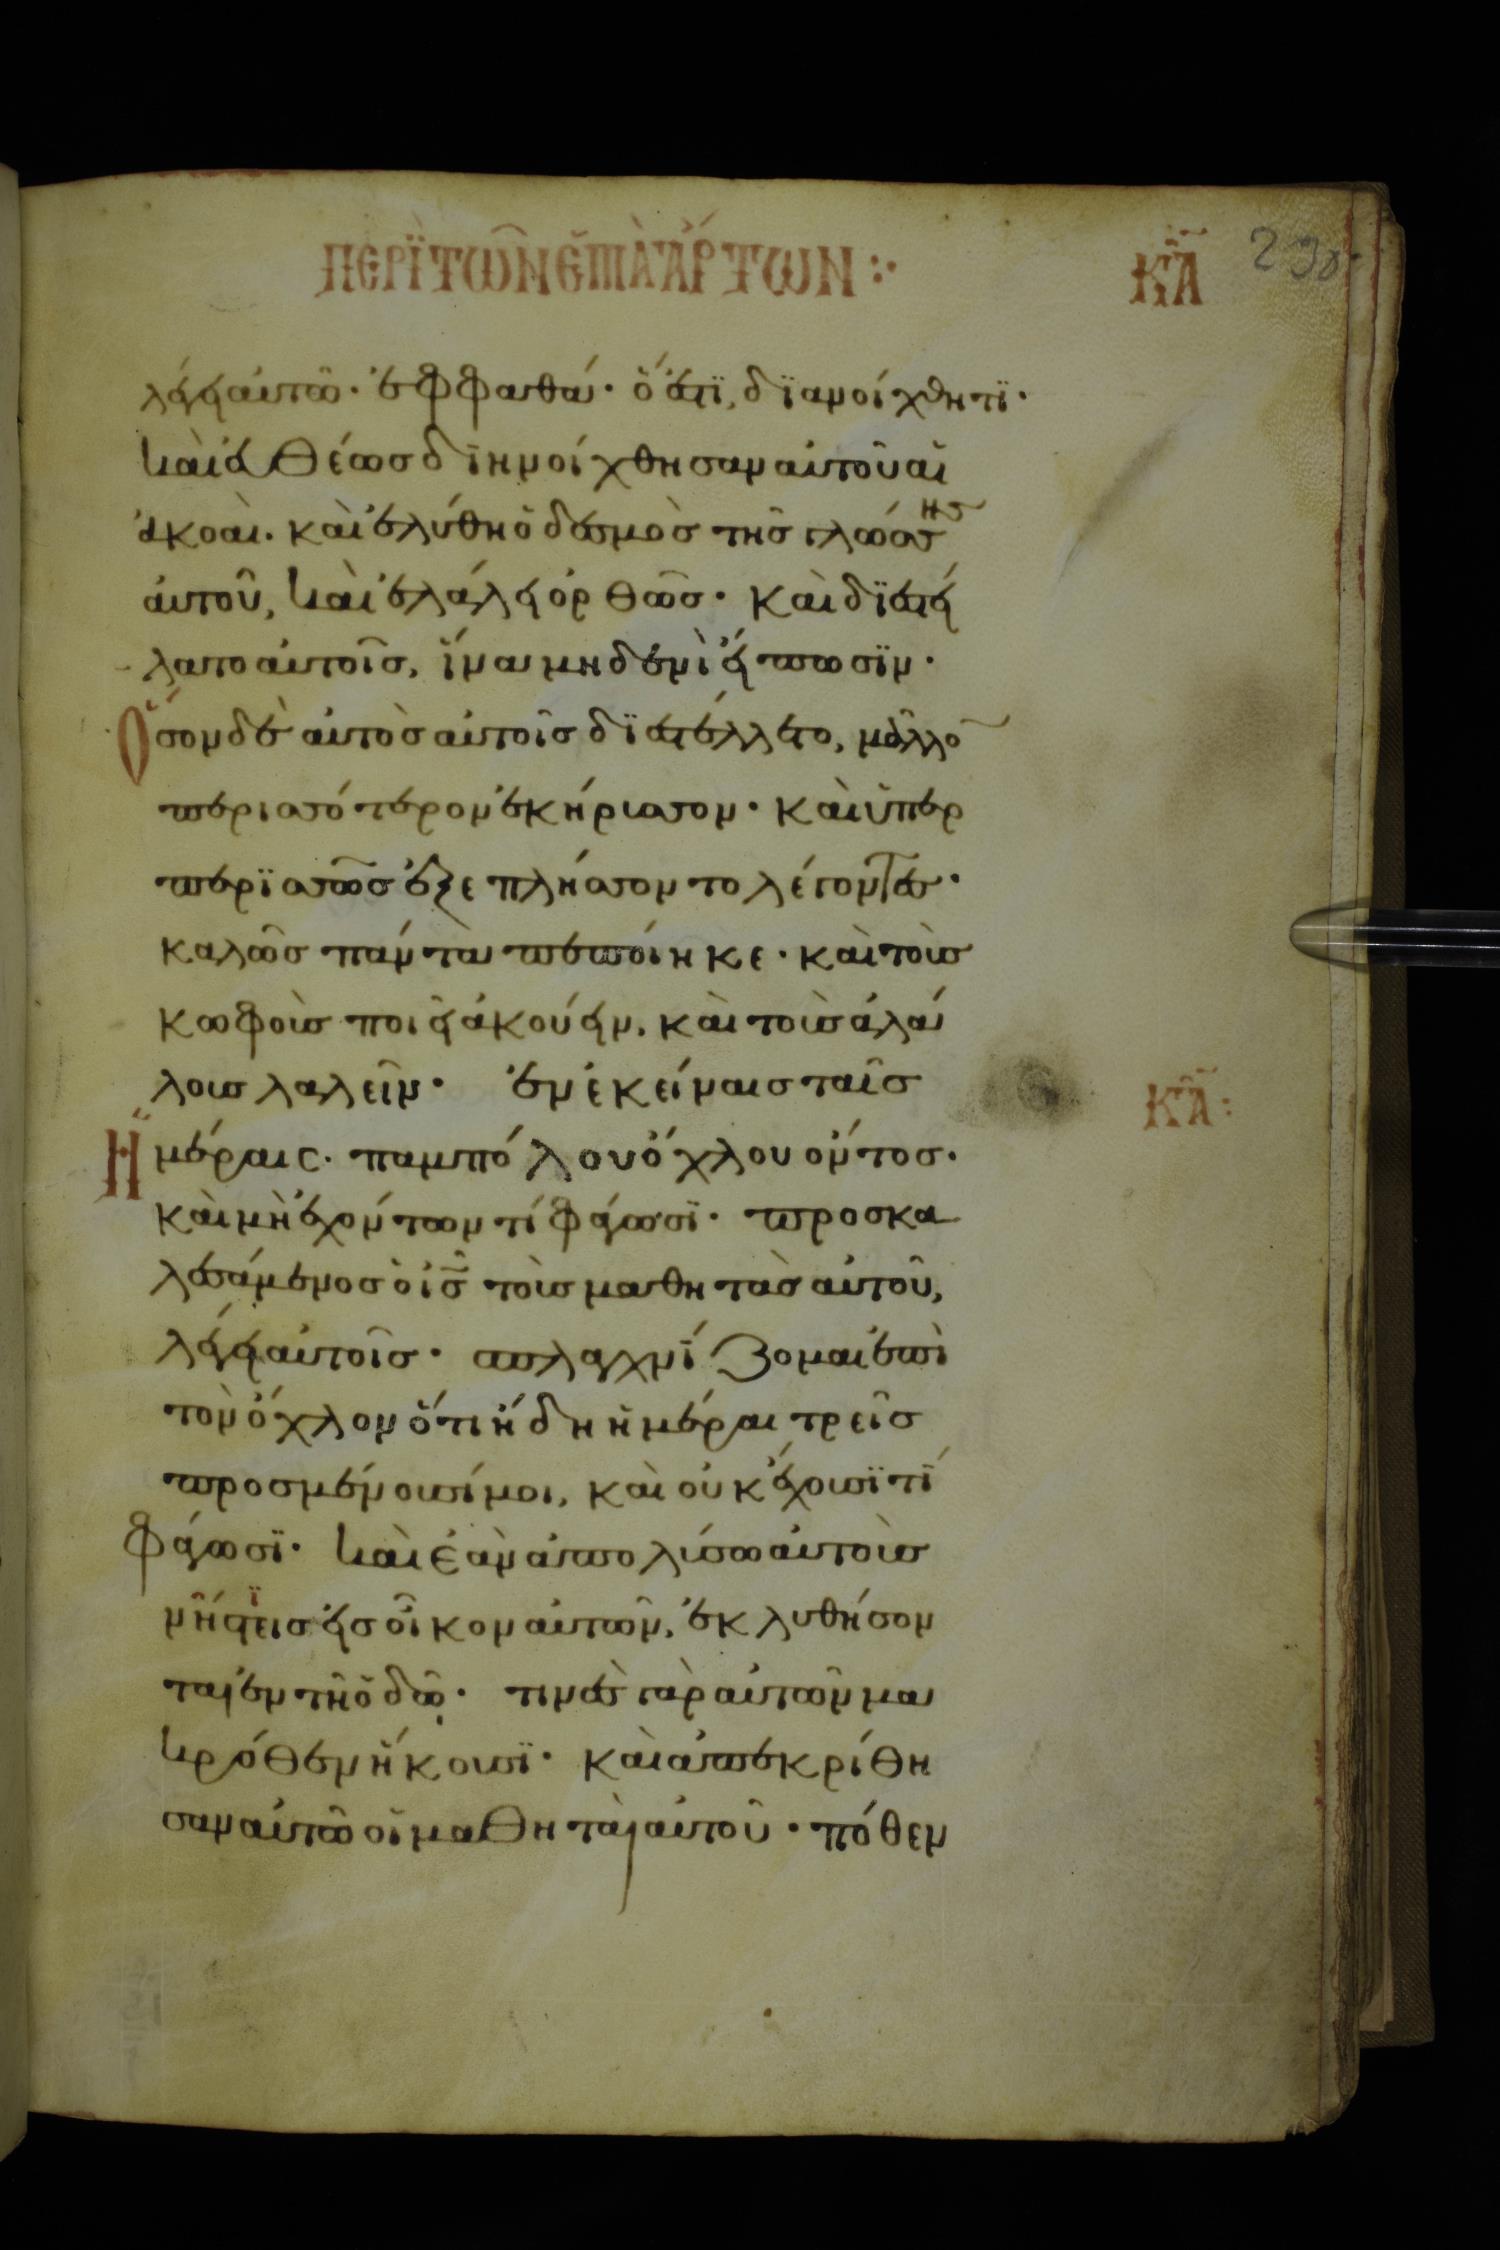 ΠΕΡῚ ΤΩ͂Ν ἙΠΤᾺ ἌΡΤΩΝ :· ΚΑ
λέγει αὐτῶ· ἐφφαθά· ὅ ἐστϊ, δϊανοίχθητϊ·
καὶ εὐθέωσ δϊηνοίχθησαν αὐτοῦ αἱ
ἀκοαὶ. καὶ ἐλύθη ὁ δεσμὸσ τῆσ γλώσσης
αὐτοῦ, καὶ ἐλάλει ὀρθῶσ· καὶ δϊεστεί
λατο αὐτοῖσ, ἵνα μηδενὶ εἴπωσϊν·
Ὅσον δὲ αὐτὸσ αὐτοῖσ δϊεστέλλετο, μᾶλλο
περισσότερον ἐκήρυσσον· καὶ ὑπερ
περϊσσῶσ ἐξεπλήσσοντο λέγοντες·
καλῶσ πάντα πεποίηκε· καὶ τοὺσ
κωφοὺσ ποιεῖ ἀκούειν, καὶ τοὺσ ἀλά
λουσ λαλεῖν· ἐν ἐκείναισ ταῖσ
Ἡμέραις· παμπόλου ὄχλου ὄντοσ·
καὶ μὴ ἐχόντων τί φάγωσϊ· προσκα
λεσάμενοσ ὁ ισ τοὺσ μαθητὰσ αὐτοῦ,
λέγει αὐτοῖσ· σπλαγχνίζομαι ἐπὶ
τὸν ὄχλον ὅτι ἤδη ἡμέραι τρεῖσ
προσμένουσί μοι, καὶ οὐκ ἔχουσϊ τί
φάγωσϊ· καὶ ἐὰν ἀπολύσω αὐτοὺσ
νήστεισ εἰσ οἶκον αὐτῶν, ἐκλυθήσον
ται ἐν τῆ ὁδῶ· τινὲσ γὰρ αὐτῶν μα
κρόθεν ἥκουσϊ· καὶ ἀπεκρίθη
σαν αὐτῶ οἱ μαθηταὶ αὐτοῦ· πόθεν
ΚΑ :